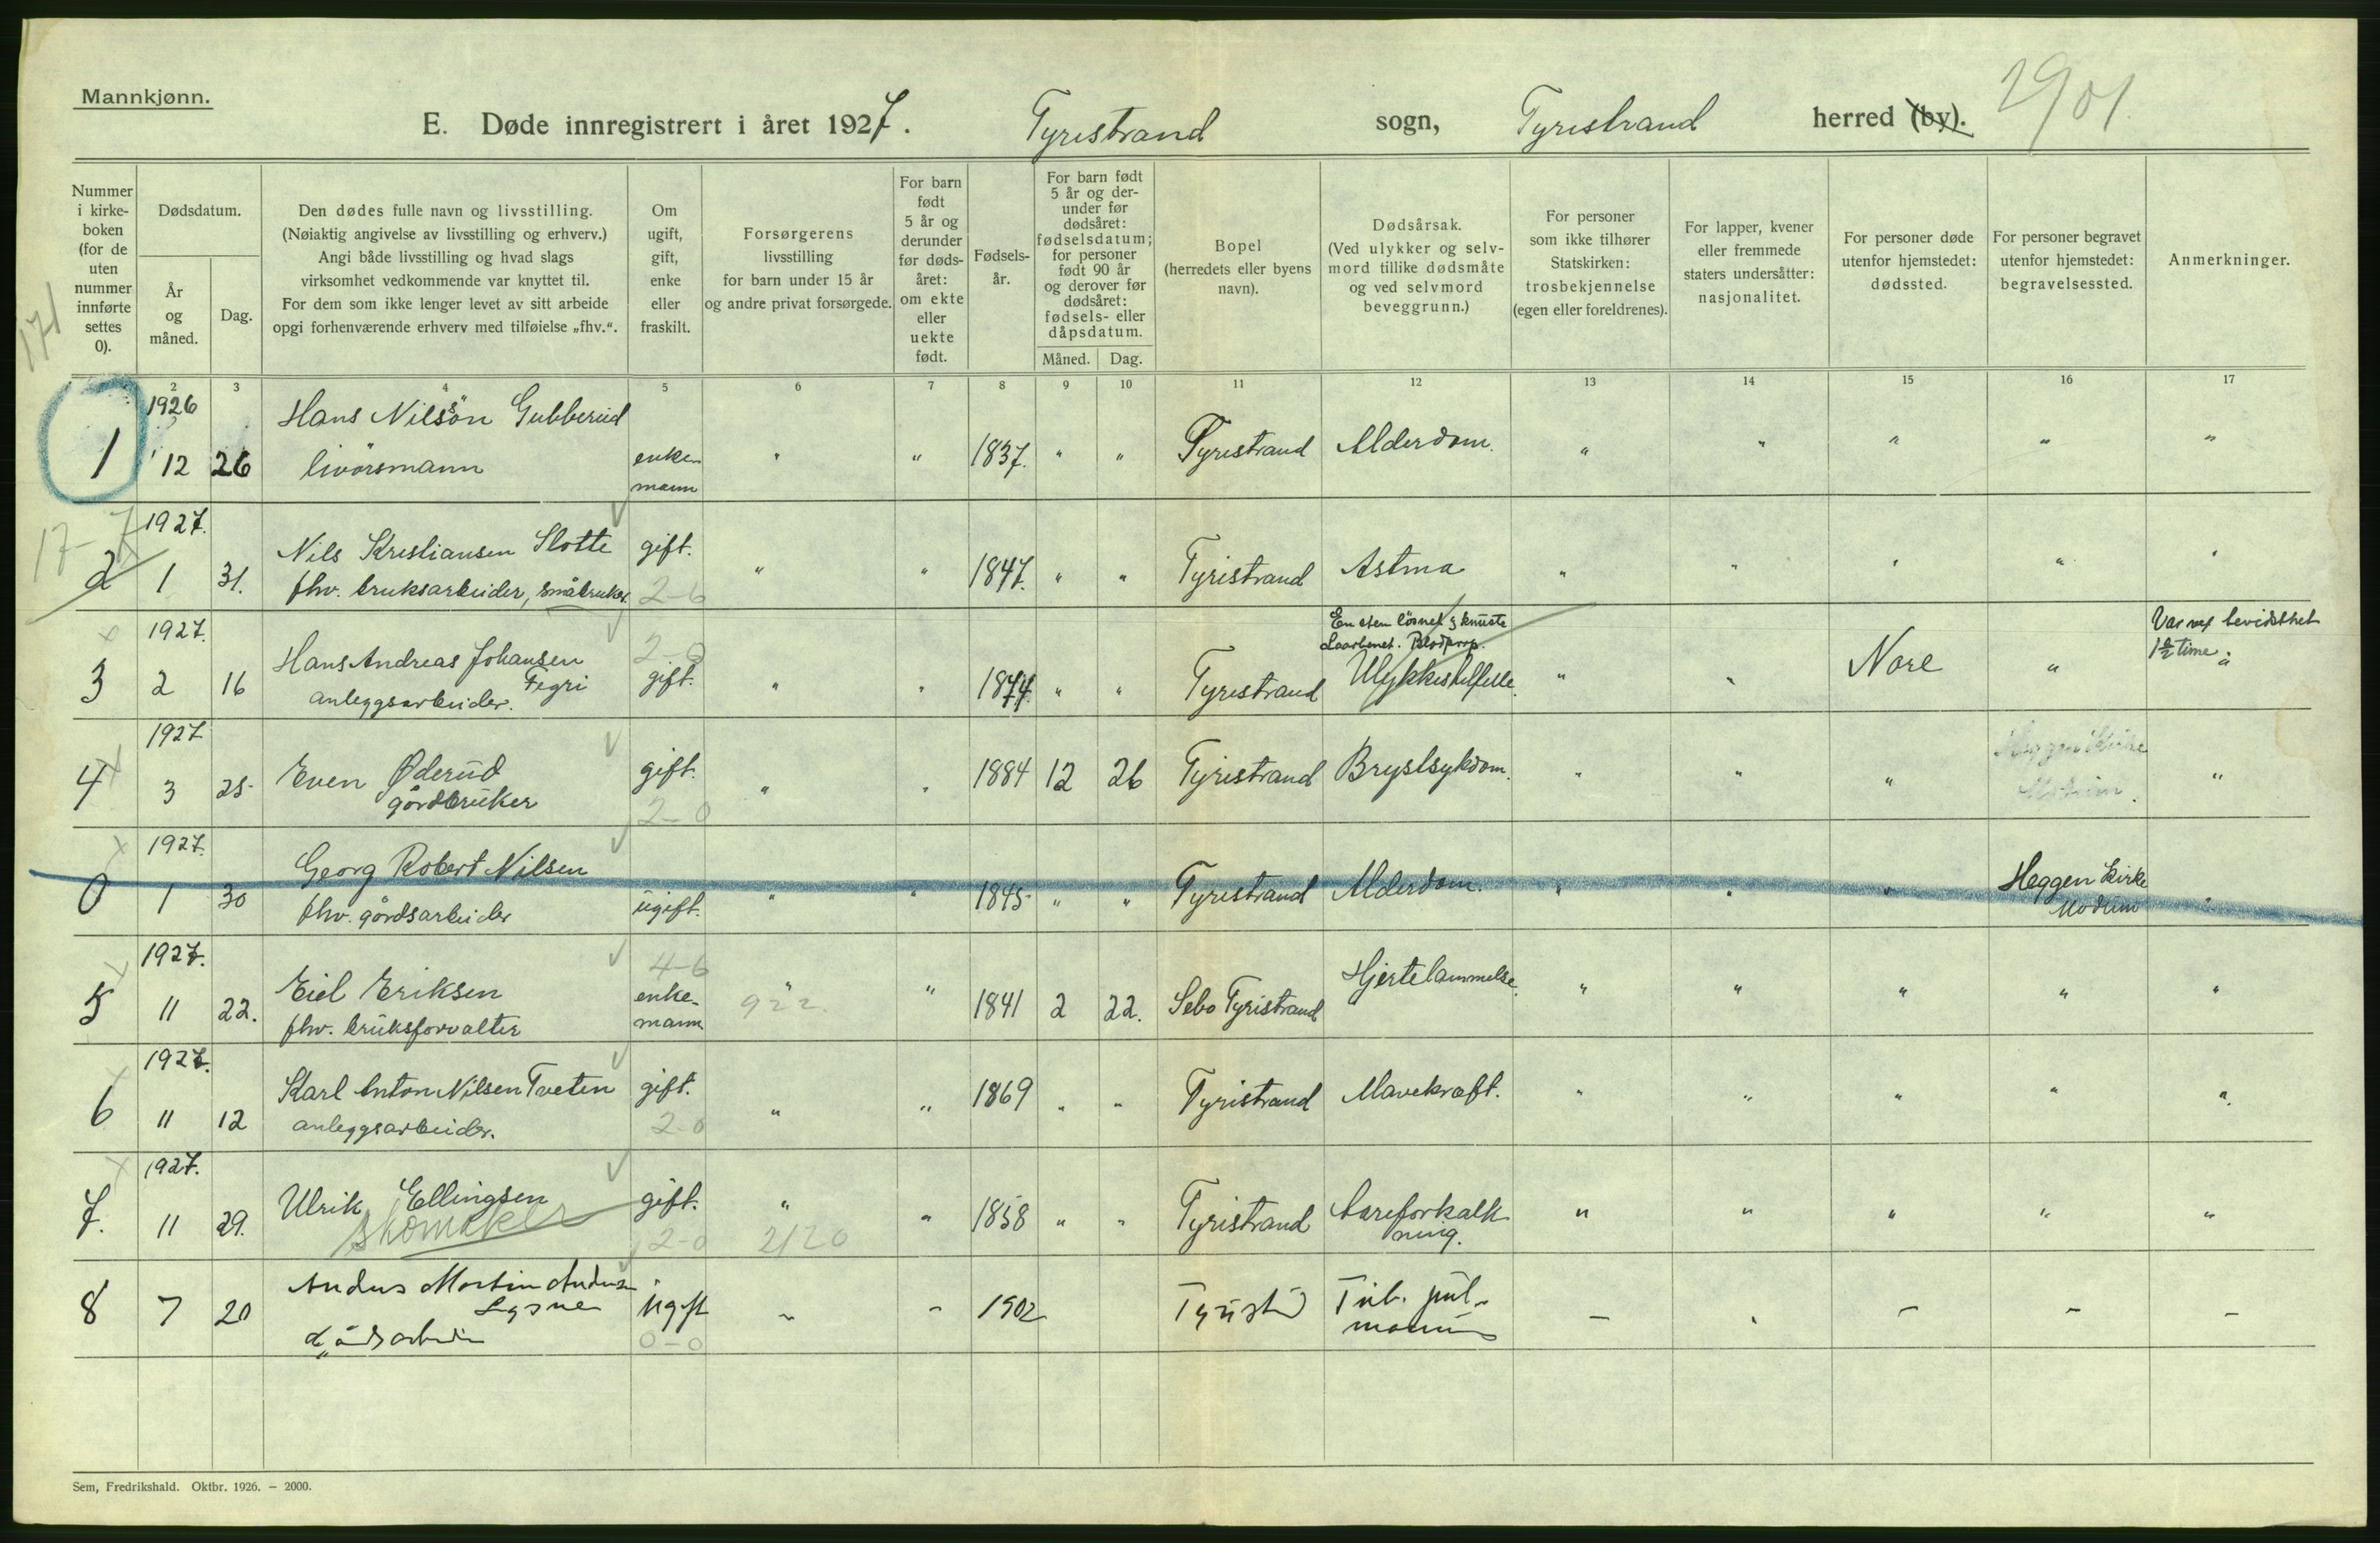 Mannkjønn.
E. Døde innregistrert i året 1927. Tyristrand sogn, Tyristrand herred (by). 2901.
Nummer i kirkeboken (for de uten nummer innførte settes 0).
Dødsdatum.
År og måned.
Dag.
Den dødes fulle navn og livsstilling.
(Nøiaktig angivelse av livsstilling og erhverv.)
Angi både livsstilling og hvad slags
virksomhet vedkommende var knyttet til.
For dem som ikke lenger levet av sitt arbeide
opgi forhenværende erhverv med tilføielse „fhv.“.
Om ugift, gift, enke eller fraskilt.
Forsørgerens
livsstilling
for barn under 15 år
og andre privat forsørgede.
For barn født 5 år og derunder før dødsåret: om ekte eller uekte født.
Fødselsår.
For barn født 5 år og derunder før dødsåret: fødselsdatum; for personer født 90 år og derover før dødsåret: fødsels- eller dåpsdatum.
Måned.
Dag.
Bopel
(herredets eller byens
navn).
Dødsårsak.
(Ved ulykker og selvmord tillike dødsmåte og ved selvmord beveggrunn.)
For personer
som ikke tilhører
Statskirken:
trosbekjennelse
(egen eller foreldrenes).
For lapper, kvener
eller fremmede
staters undersåtter:
nasjonalitet.
For personer døde
utenfor hjemstedet:
dødssted.
For personer begravet
utenfor hjemstedet:
begravelsessted.
Anmerkninger.
171
2 3 4 5 6 7 8 9 10 11 12 13 14 15 16 17
1926
Hans Nilsön Gubberud
1 12 26 livörsmann enkemann " " 1837. " " Tyristrand Alderdom. " " " " "
17-7
1927.
Nils Kristiansen Slotte gift.
2 1 31. fhv. bruksarbeider, småbruker 2-6 " " 1847. " " Tyristrand Astma " " " " "
1927. En sten løsnet & knuste Var ved bevidsthet
Laarbenet. Blodprop. 1½ time.
Hans Andreas Johansen Fegri 2-0
3 2 16 anleggsarbeider. gift. " " 1874. " " Tyristrand Ulykkestilfelle. " " Nore " "
1927
Even Øderud gift. Heggen Kirke
4 3 25 gårdbruker 2-0 " " 1884 12 26 Tyristrand Brystsykdom. " " " Modum. "
1927.
Georg Robert Nilsen
0 1 30 fhv. gårdsarbeider ugift. " " 1845 " " Tyristrand Alderdom. " " " Heggen Kirke Modum "
1927.
Eiel Eriksen 4-6
5 11 22. fhv. bruksforvalter enkemann 922. " 1841 2 22. Sebo Tyristrand Hjertelammelse. " " " " "
1927.
Karl Anton Nilsen Tveten gift.
6 11 12 anleggsarbeider. 2-0 " " 1869 " " Tyristrand Mavekræft. " " " " "
1927.
Ulrik Ellingsen gift.
7. 11 29. skomaker 2-0 2120 " 1858 " " Tyristrand Aareforkalkning. " " " " "
8 7 20 Martin Lysne ugift 0-0 " - 1902 Tub. pul- - - - -
Sem, Fredrikshald. Oktbr. 1926. – 2000.